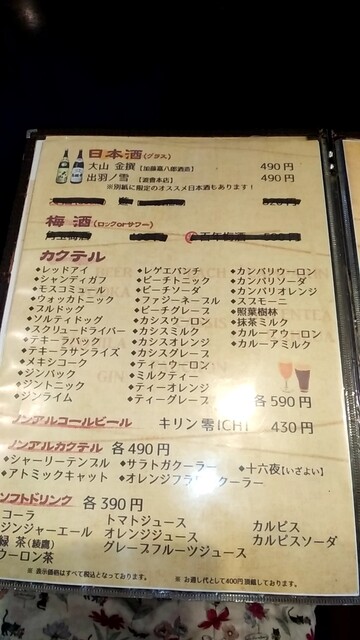 日本酒(グラス)
大山 金撰【加藤嘉八郎酒造】 490円
出羽ノ雪【渡會本店】 490円
※別紙に限定のオススメ日本酒もあります！
梅酒(ロックorサワー)
百年梅酒
カクテル
◆レッドアイ ◆レゲエパンチ ◆カンパリウーロン
◆シャンディガフ ◆ピーチトニック ◆カンパリソーダ
◆モスコミュール ◆ピーチソーダ ◆カンパリオレンジ
◆ウォッカトニック ◆ファジーネーブル ◆スプモーニ
◆ブルドッグ ◆ピーチグレープ ◆照葉樹林
◆ソルティドッグ ◆カシスウーロン ◆抹茶ミルク
◆スクリュードライバー ◆カシスミルク ◆カルーアウーロン
◆テキーラバック ◆カシスオレンジ ◆カルーアミルク
◆テキーラサンライズ ◆カシスグレープ
◆メキシコーク ◆ティーウーロン
◆ジンバック ◆ミルクティー
◆ジントニック ◆ティーオレンジ
◆ジンライム ◆ティーグレープ 各590円
ノンアルコールビール キリン 零【ICHI】 430円
ノンアルカクテル 各490円
◆シャーリーテンプル ◆サラトガクーラー ◆十六夜【いざよい】
◆アトミックキャット ◆オレンジフラワークーラー
ソフトドリンク 各390円
コーラ トマトジュース カルピス
ジンジャーエール オレンジジュース カルピスソーダ
緑茶(綾鷹) グレープフルーツジュース
ウーロン茶
※ 表示価格はすべて税込となっております。 ※ お通し代として400円頂戴しております。